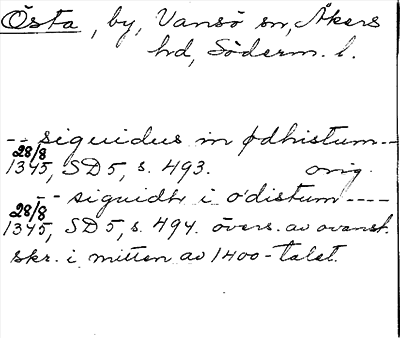 Östa, by, Vansö sn, Åkers
hd, Söderm. l.
-- siguidus in ødhistum --
28/8
1345, SD 5, s. 493. orig.
-- siguidh i ødistum ----
28/8
1345, SD 5, s. 494. övers. av ovanst.
skr. i mitten av 1400-talet.